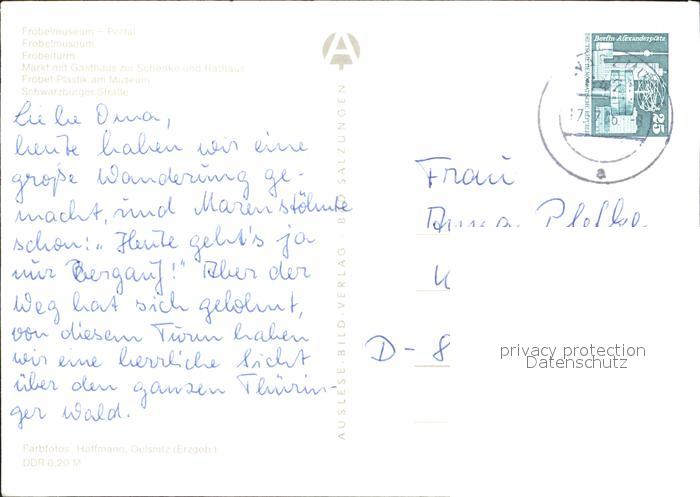 Fröbelmuseum - Portal
Fröbelmuseum
Fröbelturm
Markt mit Gasthaus zur Schenke und Rathaus
Fröbel-Plastik am Museum
Schwarzburger Straße
Liebe Oma,
heute haben wir eine
große Wanderung ge-
macht, und Maren stöhnte
schon: „Heute geht's ja
nur Bergauf!" Aber der
Weg hat sich gelohnt,
von diesem Turm haben
wir eine herrliche Sicht
über den ganzen Thürin-
ger Wald.
Farbfotos: Hoffmann, Oelsnitz (Erzgeb.)
DDR 0,20 M
AUSLESE-BILD-VERLAG BAD SALZUNGEN
Berlin-Alexanderplatz
25
a
Frau
Anna
D-8
privacy protection
Datenschutz